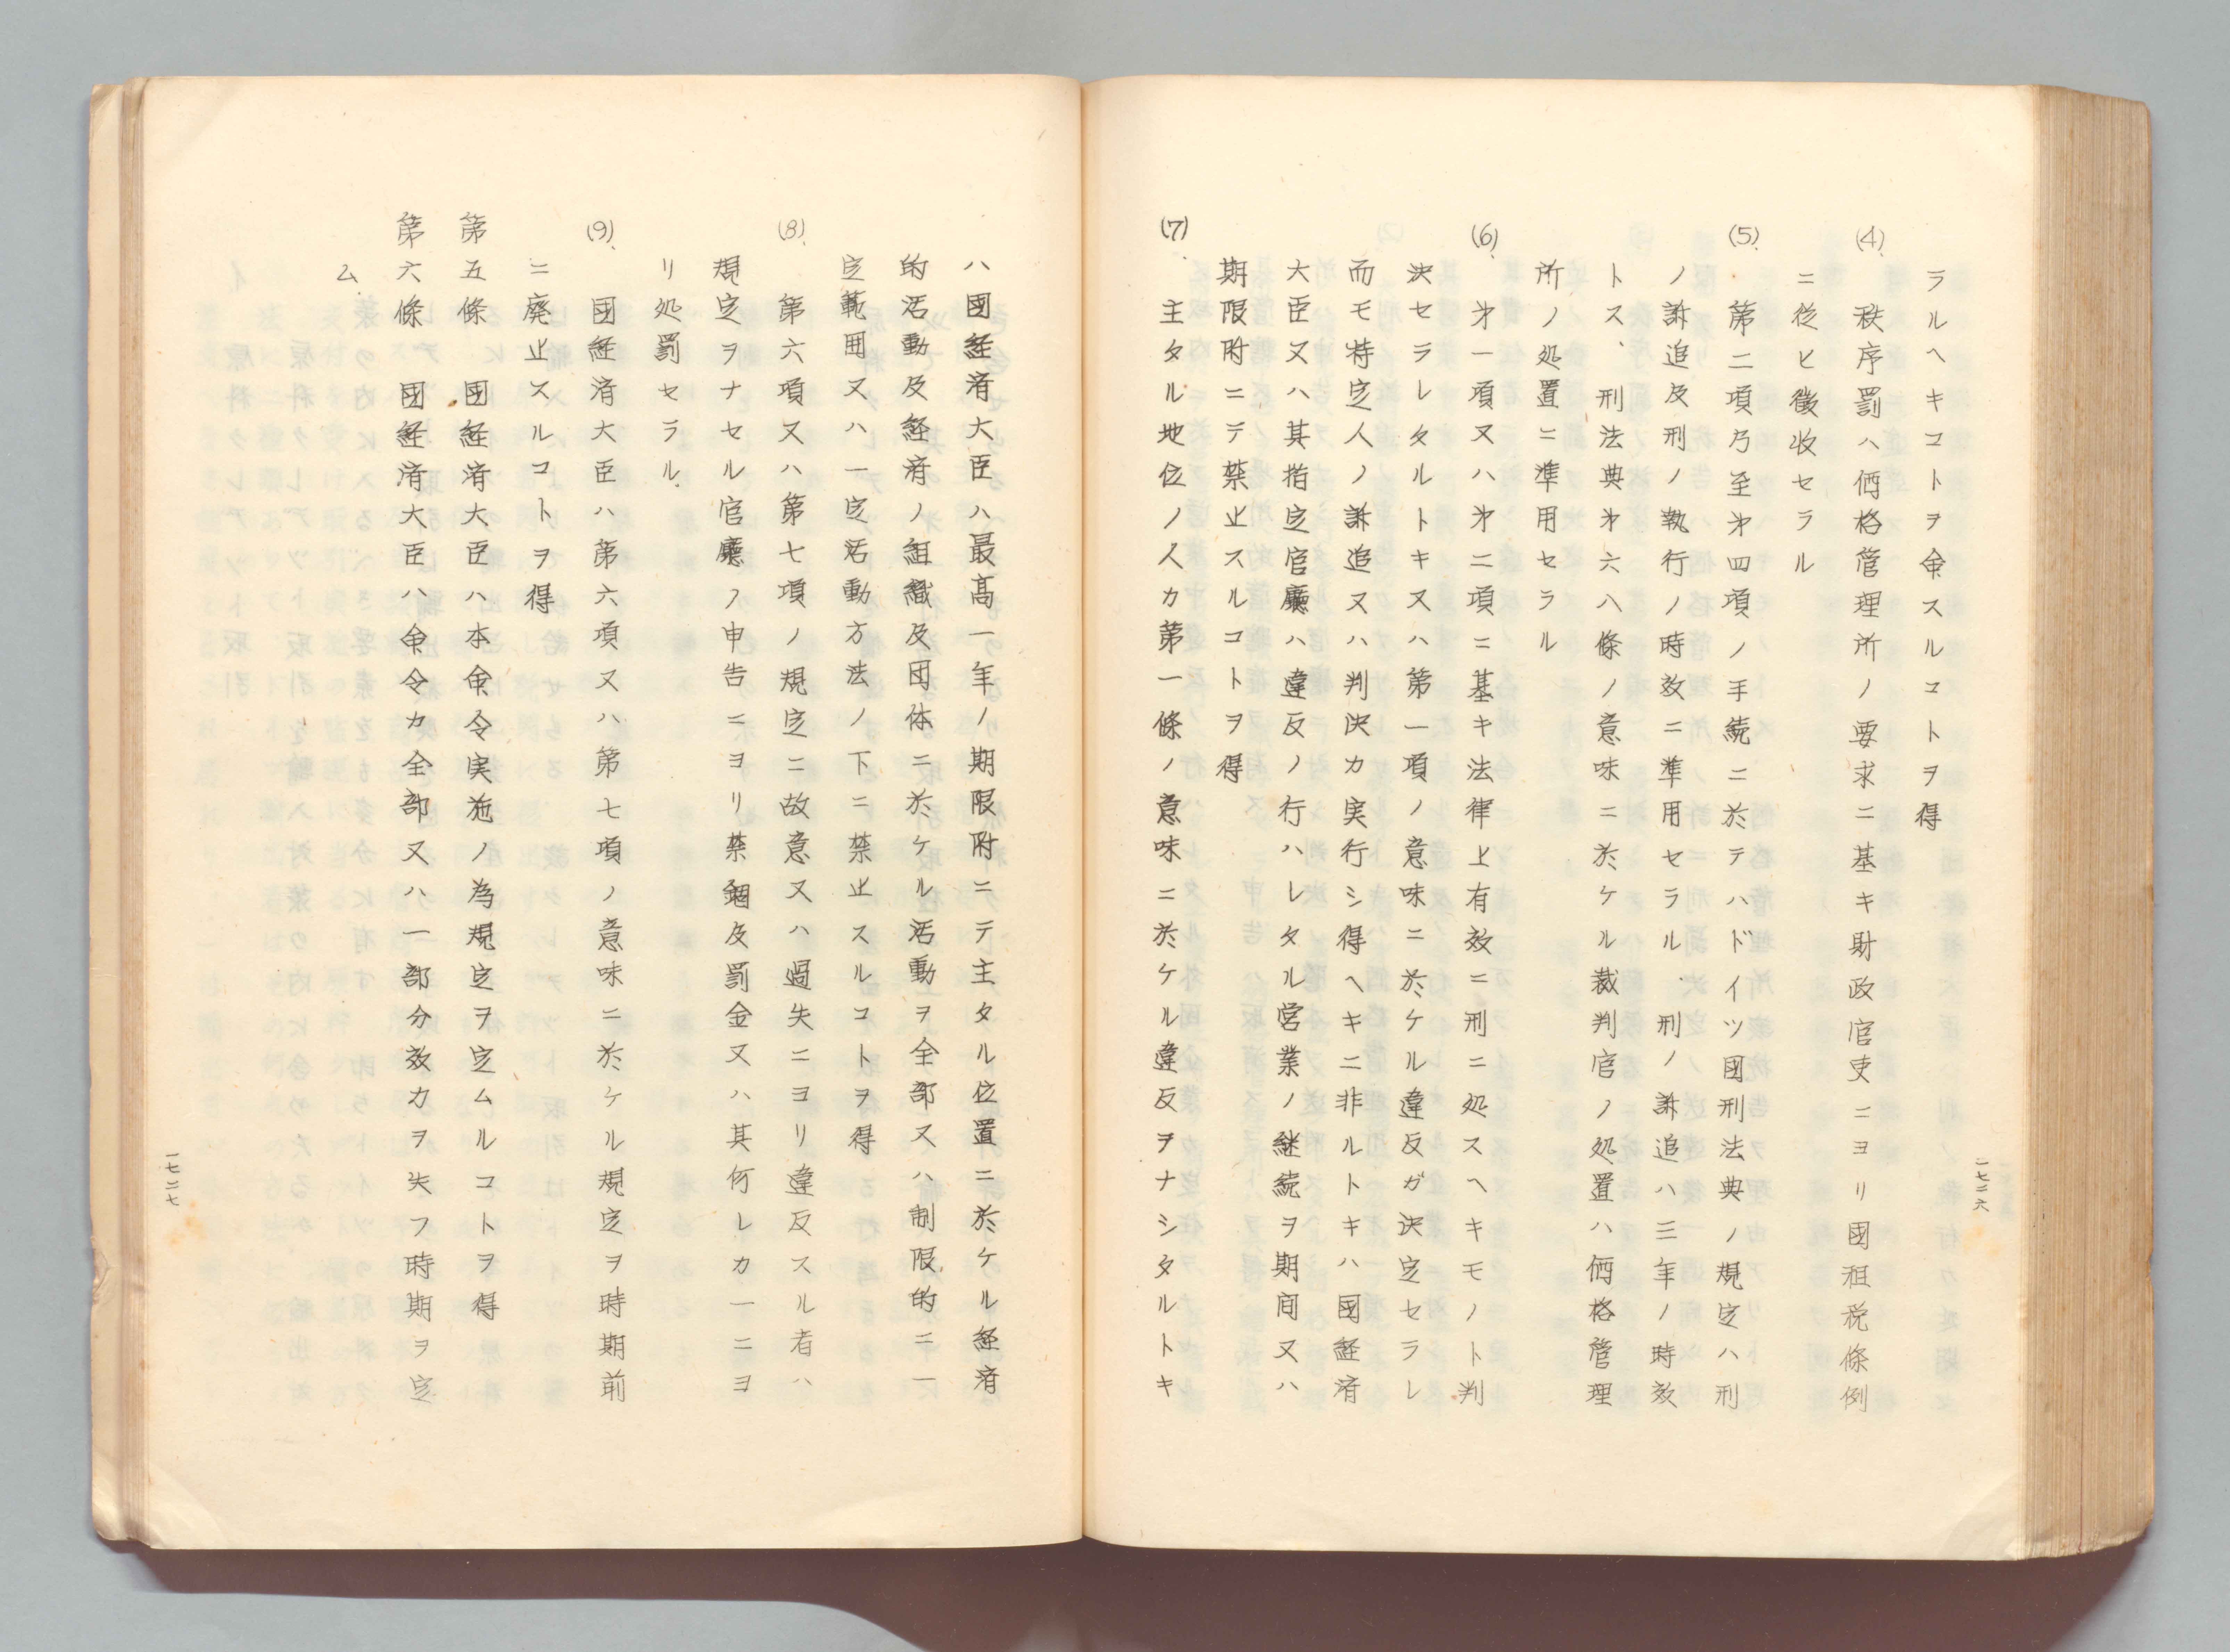 ラルヘキコトヲ命スルコトヲ得
(4). 秩序罰ハ価格管理所ノ要求ニ基キ財政官吏ニヨリ國租税條例
ニ従ヒ徴收セラル
(5). 第二項乃至才四項ノ手続ニ於テハドイツ國刑法典ノ規定ハ刑
ノ訴追及刑ノ執行ノ時效ニ準用セラル、刑ノ訴追ハ三年ノ時效
トス、刑法典才六八條ノ意味ニ於ケル裁判官ノ処置ハ価格管理
所ノ処置ニ準用セラル
(6). 才一項又ハ才二項ニ基キ法律上有效ニ刑ニ処スヘキモノト判
決セラレタルトキ又ハ第一項ノ意味ニ於ケル違反ガ決定セラレ
而モ特定人ノ訴追又ハ判決カ実行シ得ヘキニ非ルトキハ國経済
大臣又ハ其指定官廳ハ違反ノ行ハレタル営業ノ継続ヲ期間又ハ
期限附ニテ禁止スルコトヲ得
(7). 主タル地位ノ人カ第一條ノ意味ニ於ケル違反ヲナシタルトキ
一七二六
ハ國経済大臣ハ最高一年ノ期限附ニテ主タル位置ニ於ケル経済
的活動及経済ノ組織及団体ニ於ケル活動ヲ全部又ハ制限的ニ一
定範囲又ハ一定活動方法ノ下ニ禁止スルコトヲ得
(8). 第六項又ハ第七項ノ規定ニ故意又ハ過失ニヨリ違反スル者ハ
規定ヲナセル官廳ノ申告ニヨリ禁錮及罰金又ハ其何レカ一ニヨ
リ処罰セラル.
(9). 国経済大臣ハ第六項又ハ第七項ノ意味ニ於ケル規定ヲ時期前
ニ廃止スルコトヲ得
第五條 國経済大臣ハ本命令実施ノ為規定ヲ定ムルコトヲ得
第六條 國経済大臣ハ命令カ全部又ハ一部分效力ヲ失フ時期ヲ定
ム.
一七二七